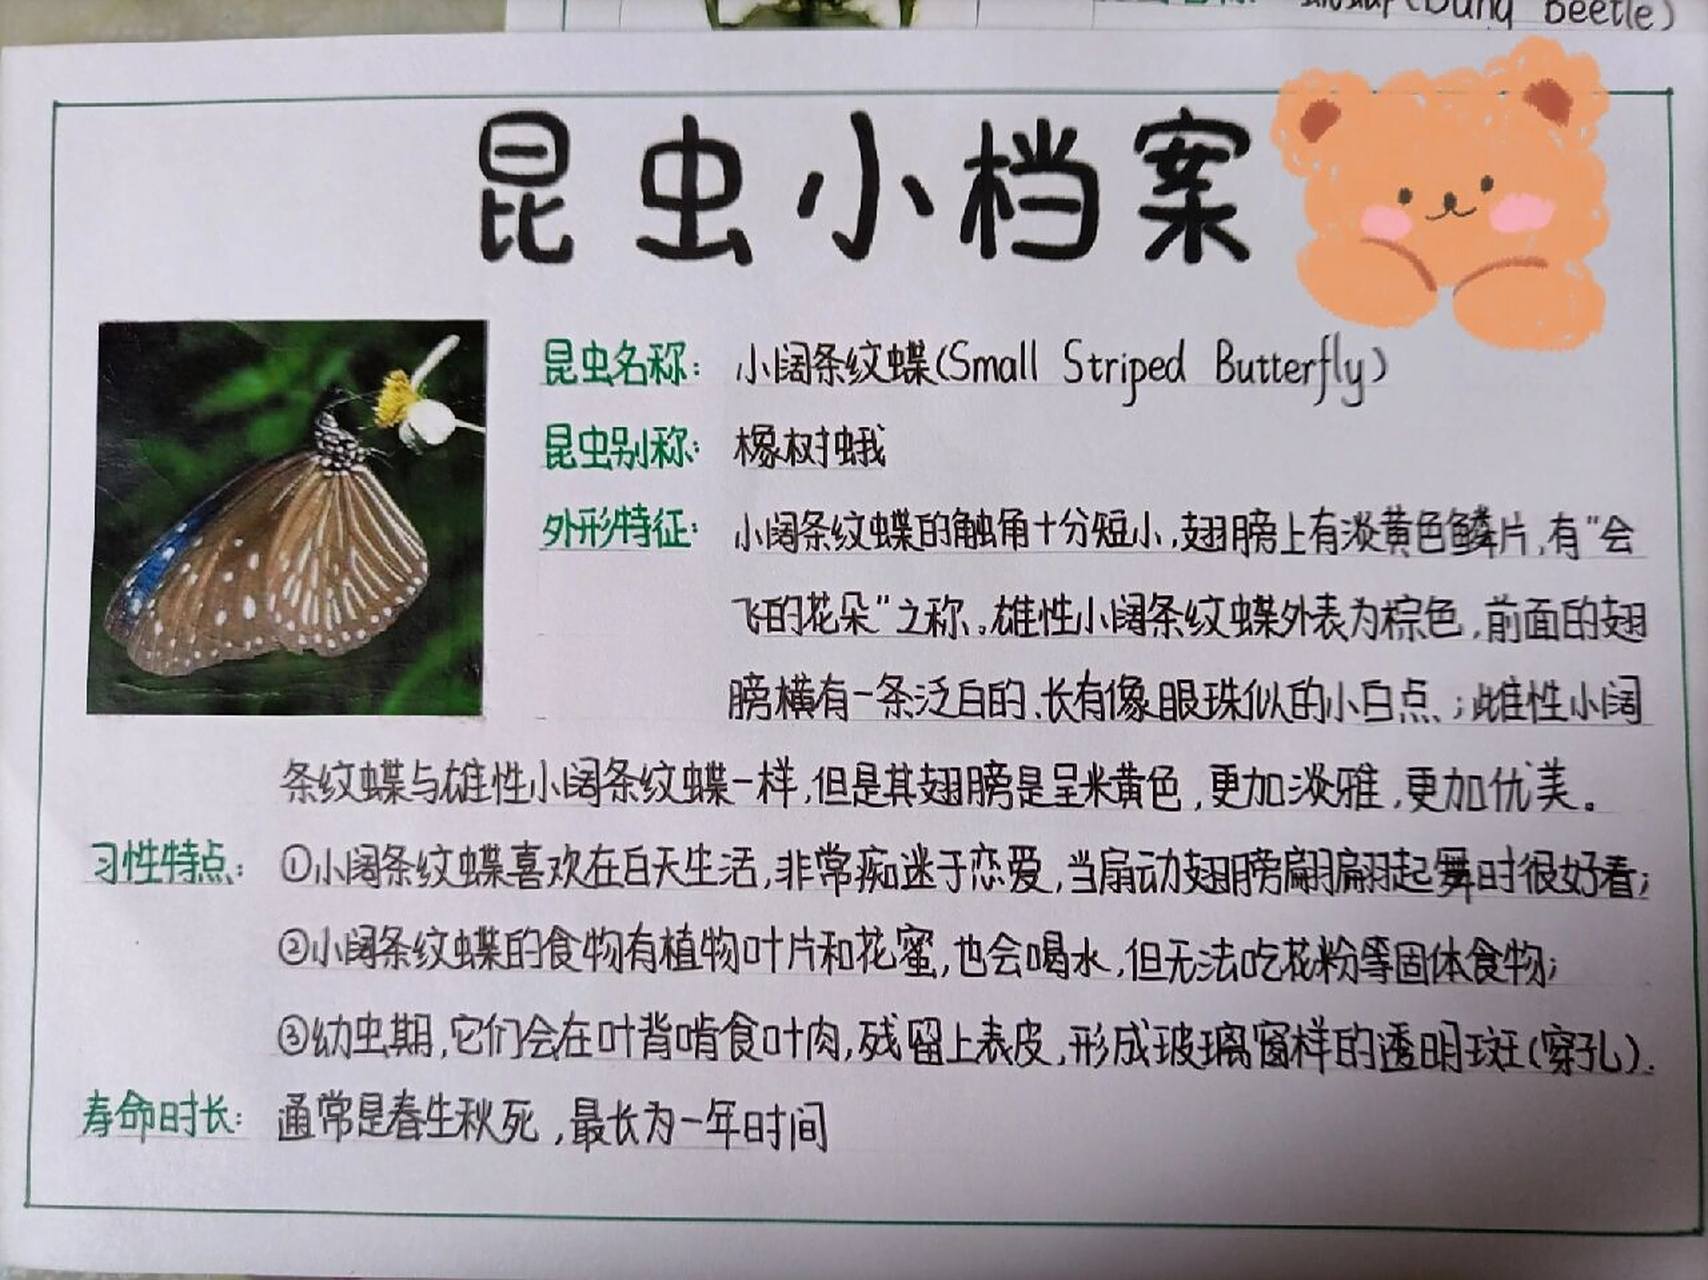 (Dung Beetle)
昆虫小档案
昆虫名称: 小阔条纹蝶(Small Striped Butterfly)
昆虫别称: 橡树蛾
外形特征: 小阔条纹蝶的触角十分短小,翅膀上有淡黄色鳞片,有"会
飞的花朵"之称。雄性小阔条纹蝶外表为棕色,前面的翅
膀横有一条泛白的、长有像眼珠似的小白点、;雌性小阔
条纹蝶与雄性小阔条纹蝶一样,但是其翅膀是呈米黄色,更加淡雅,更加优美。
习性特点: ①小阔条纹蝶喜欢在白天生活,非常痴迷于恋爱,当扇动翅膀翩翩起舞时很好看;
②小阔条纹蝶的食物有植物叶片和花蜜,也会喝水,但无法吃花粉等固体食物;
③幼虫期,它们会在叶背啃食叶肉,残留上表皮,形成玻璃窗样的透明斑(穿孔).
寿命时长: 通常是春生秋死,最长为一年时间